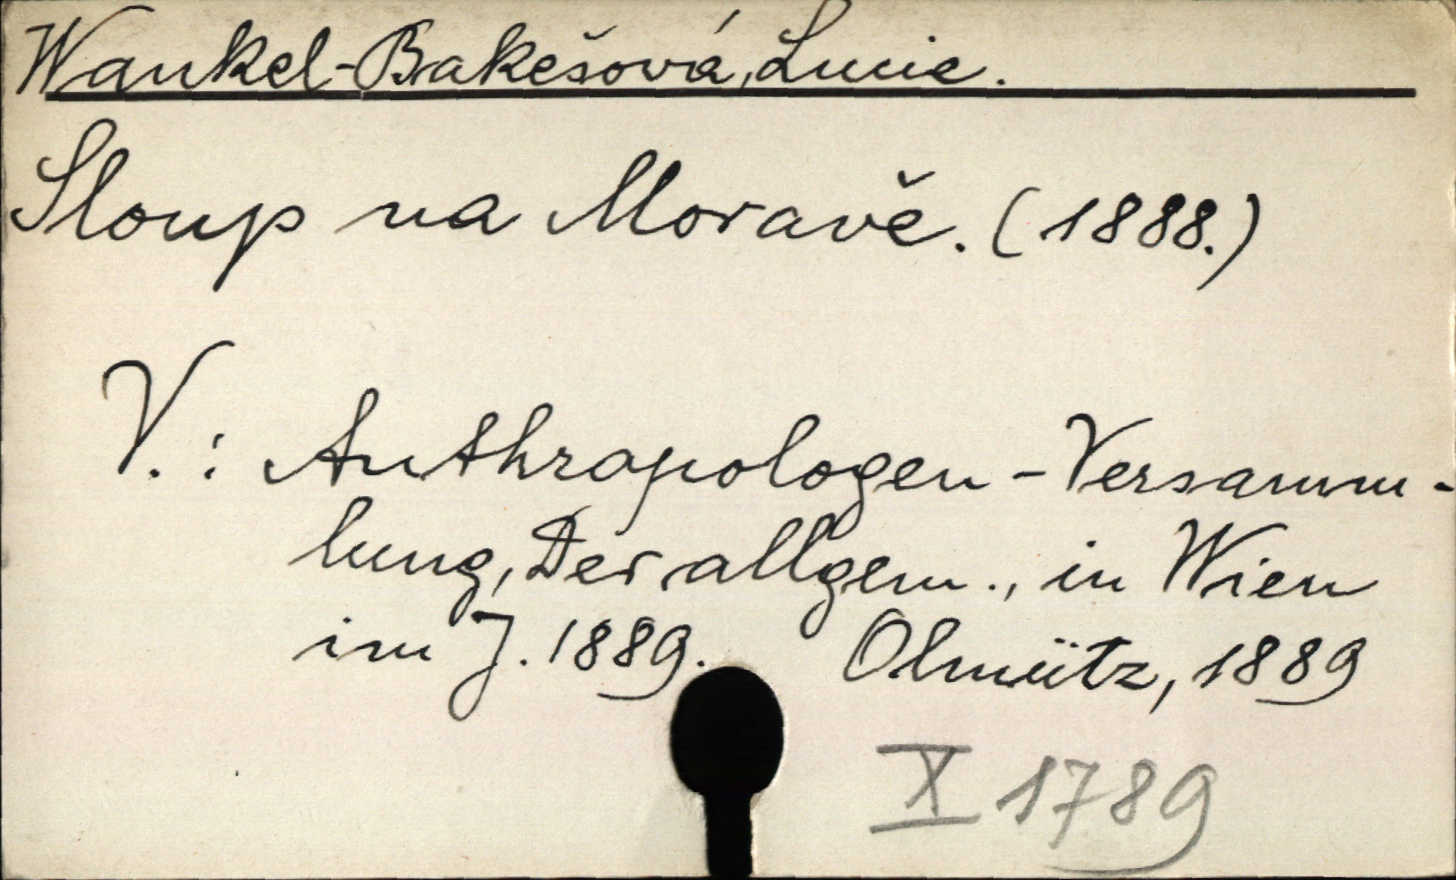 Wankel-Bakešová, Lucie.
Sloup na Moravě. (1888.)
V.: Anthropologen-Versamm-
lung, Der allgem., in Wien
im J. 1889. Olmütz, 1889
X 1789